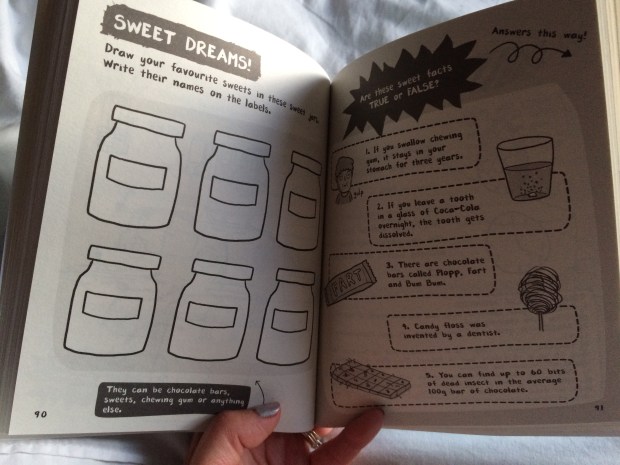 SWEET DREAMS!
Draw your favourite sweets in these sweet jars.
Write their names on the labels.
They can be chocolate bars,
sweets, chewing gum or anything
else.
90
Answers this way!
Are these sweet facts
TRUE or FALSE?
1. If you swallow chewing
gum, it stays in your
stomach for three years.
gulp
2. If you leave a tooth
in a glass of Coca-Cola
overnight, the tooth gets
dissolved.
3. There are chocolate
bars called Plopp, Fart
and Bum Bum.
FART
4. Candy floss was
invented by a dentist.
5. You can find up to 60 bits
of dead insect in the average
100g bar of chocolate.
91